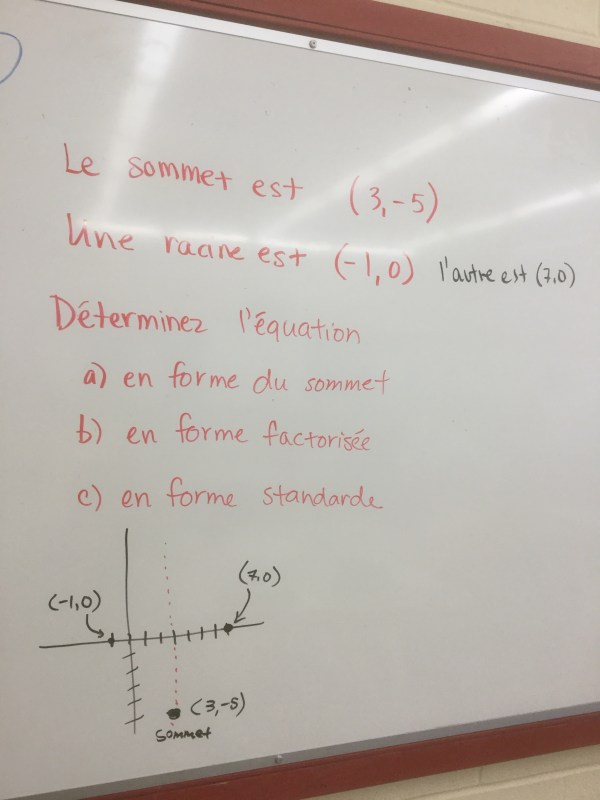 Le sommet est (3,-5)
Une racine est (-1,0) l'autre est (7,0)
Déterminez l'équation
a) en forme du sommet
b) en forme factorisée
c) en forme standarde
(-1,0)
(7,0)
(3,-5)
sommet